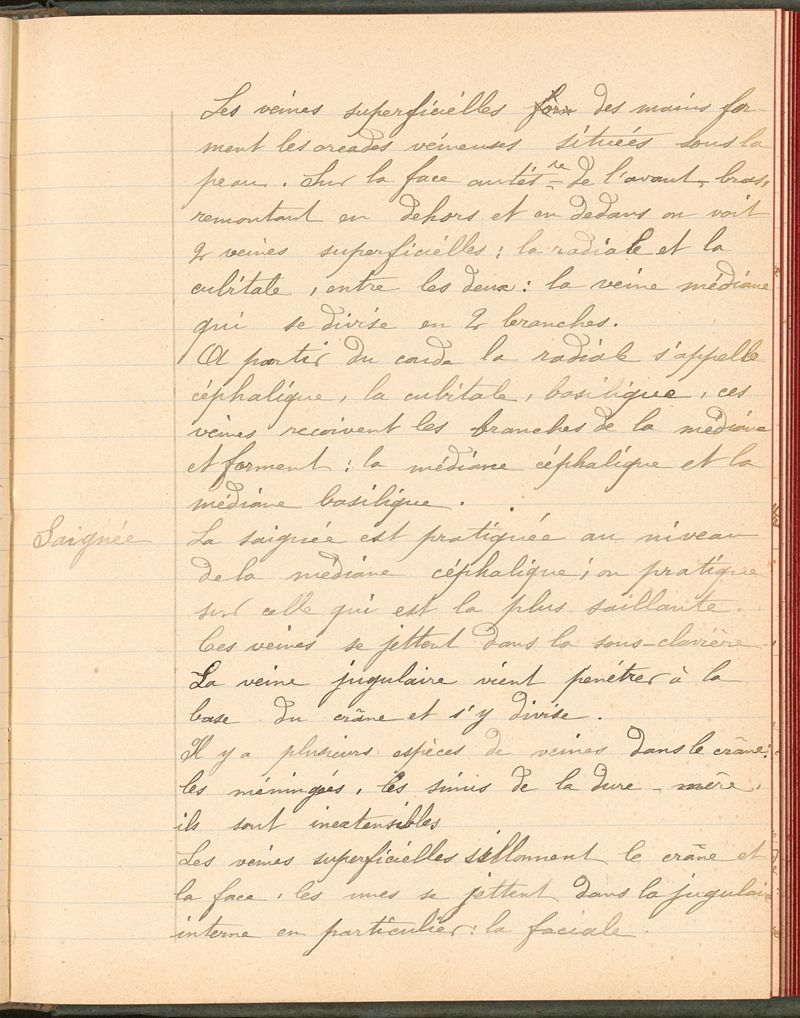 Les veines superficielles form des mains for-
ment les arcades veineuses situées sous la
peau. Sur la face antér.re de l'avant-bras,
remontant en dehors et en dedans on voit
2 veines superficielles : la radiale et la
cubitale, entre les deux : la veine médiane
qui se divise en 2 branches.
A partir du coude la radiale s'appelle
céphalique, la cubitale, basilique, ces
veines recoivent les branches de la médiane
et forment : la médiane céphalique et la
médiane basilique.
Saignée
La saignée est pratiquée au niveau
de la médiane céphalique ; on pratique
sur celle qui est la plus saillante.
Ces veines se jettent dans la sous-clavière.
La veine jugulaire vient penétrer à la
base du crâne et s'y divise.
Il y a plusieurs espèces de veines dans le crâne :
les méningées, les sinus de la dure-mère,
ils sont inextensibles
Les veines superficielles sillonnent le crâne et
la face, les unes se jettent dans la jugulaire
interne en particulier : la faciale.